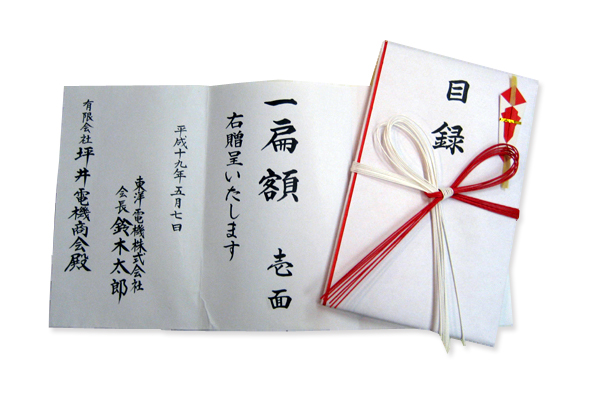 目録
一 扁額 壱面
右贈呈いたします
平成十九年五月七日
東洋電機株式会社
会長 鈴木太郎
有限会社 坪井電機商会殿